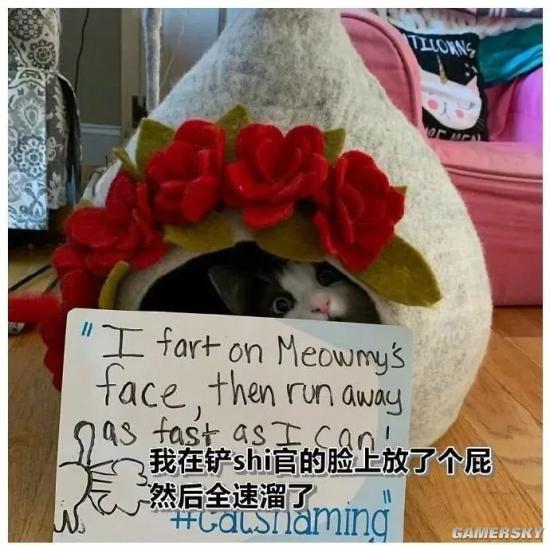 TICORNS
" I fart on Meowmy's
face, then run away
as fast as I can!
我在铲shi官的脸上放了个屁
然后全速溜了
#catshaming"
GAMERSKY